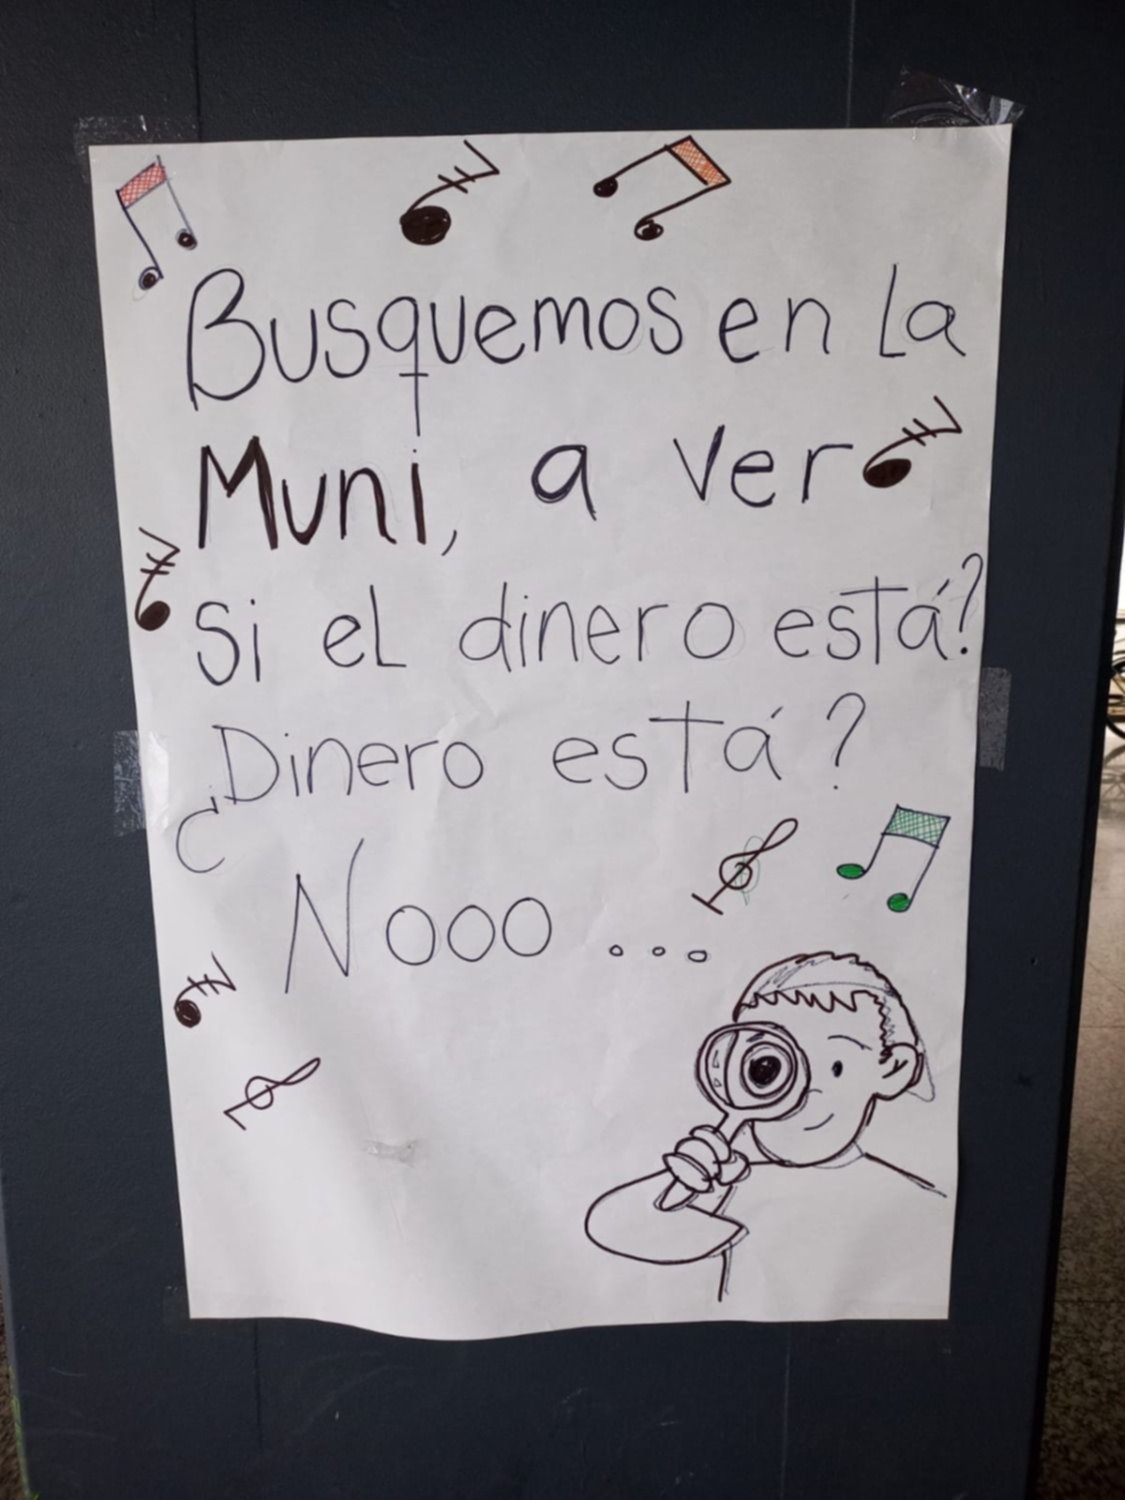 Busquemos en la
Muni, a ver
Si el dinero está?
¿Dinero está?
Nooo ...